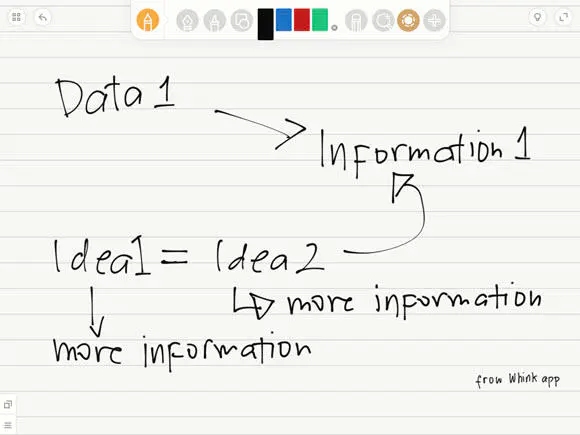 Data 1
Information 1
Idea1 = Idea2
more information
more information
frow Whink app